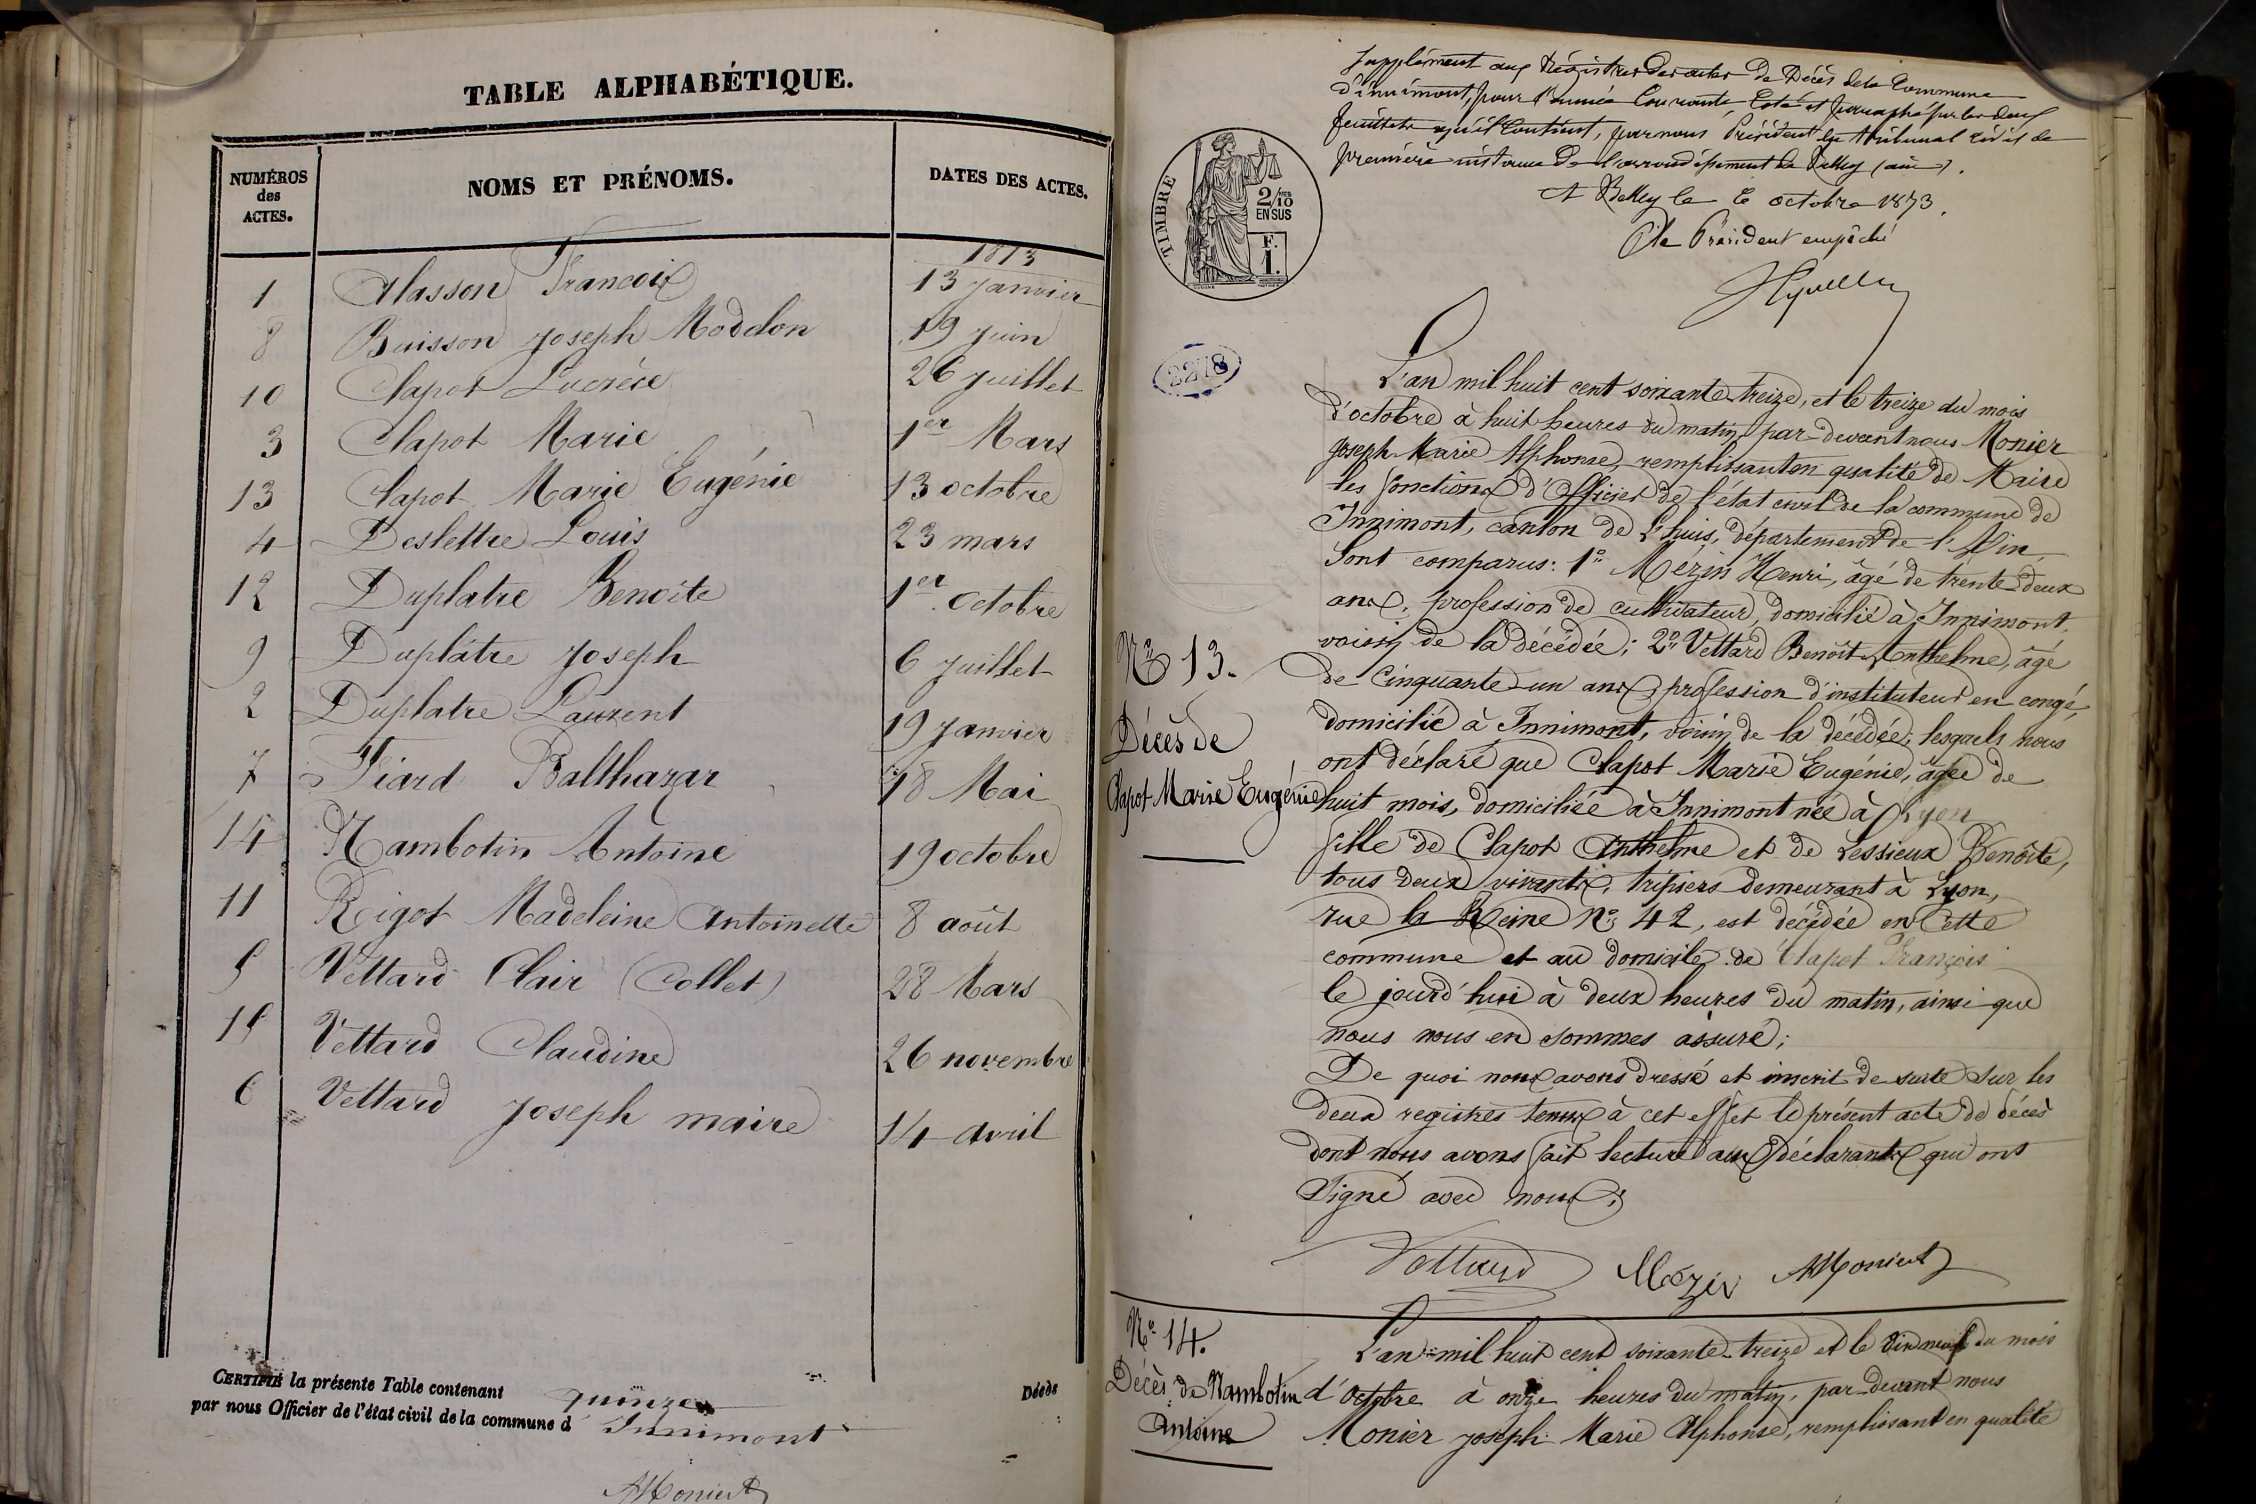 TABLE ALPHABÉTIQUE.
NUMÉROS
des
ACTES.
NOMS ET PRÉNOMS.
DATES DES ACTES.
1873
1 Masson François 13 Janvier
8 Buisson Joseph Modelon 19 Juin
10 Clapot Lucrèce 26 Juillet
3 Clapot Marie 1er Mars
13 Clapot Marie Eugénie 13 octobre
4 Deslettre Louis 23 mars
12 Duplatre Benoîte 1er Octobre
9 Duplâtre Joseph 6 Juillet
2 Duplatre Laurent 19 Janvier
7 Fiard Balthazar 18 Mai
14 Nambotin Antoine 19 octobre
11 Rigot Madeleine Antoinette 8 août
5 Vettard Clair (Collet) 28 Mars
15 Vettard Claudine 26 novembre
6 Vettard Joseph maire 14 avril
CERTIFIÉ la présente Table contenant quinze Décès
par nous Officier de l'état civil de la commune d' Innimont
AMonier
Supplément aux Régistres des actes de Décès de la Commune
d'innimont, pour l'année Courante, Coté et paraphé sur les deux
feuillets qu'il Contient, par nous Président du tribunal civil de
première instance de l'arrondissement de Belley (ain).
A Belley le 6 octobre 1873.
Le Président empêché
TIMBRE
2/10 EN SUS
F. 1.
2218
L'an mil huit cent soixante-treize, et le treize du mois
d'octobre à huit heures du matin, par-devant nous Monier
Joseph Marie Alphonse, remplissant en qualité de Maire
les fonctions d'Officier de l'état civil de la commune de
Innimont, canton de L'huis, département de l'Ain,
Sont comparus: 1° Mezin Henri, âgé de trente-deux
ans, profession de cultivateur, domicilié à Innimont,
voisin de la décédée; 2° Vettard Benoît Anthelme, âgé
de Cinquante-un ans, profession d'instituteur en congé,
domicilié à Innimont, voisin de la décédée; lesquels nous
ont déclaré que Clapot Marie Eugénie, âgée de
huit mois, domiciliée à Innimont née à Lyon
fille de Clapot Anthelme et de Lessieux Benoîte,
tous deux vivants, tripiers demeurant à Lyon,
rue la Reine N° 42, est décédée en Cette
commune et au domicile de Clapot François
le jourd'hui à deux heures du matin, ainsi que
nous nous en sommes assuré;
De quoi nous avons dressé et inscrit de suite sur les
deux registres tenus à cet effet le présent acte de décès
dont nous avons fait lecture aux déclarants qui ont
Signé avec nous;
N° 13.
Décès de
Clapot Marie Eugénie
Vettard Mézin AMonier
N° 14.
Décès de Nambotin
Antoine
L'an mil huit cent soixante-treize et le dix neuf du mois
d'Octobre à onze heures du matin, par-devant nous
Monier Joseph Marie Alphonse, remplissant en qualité